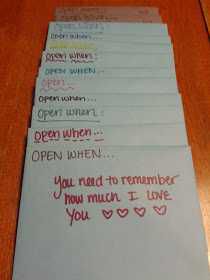 Open when...
Open when...
Open when...
Open when...
Open when:
Open when...
Open...
Open when...
Open when:
Open when...
OPEN WHEN...
You need to remember
how much I love
you ♡ ♡ ♡ ♡